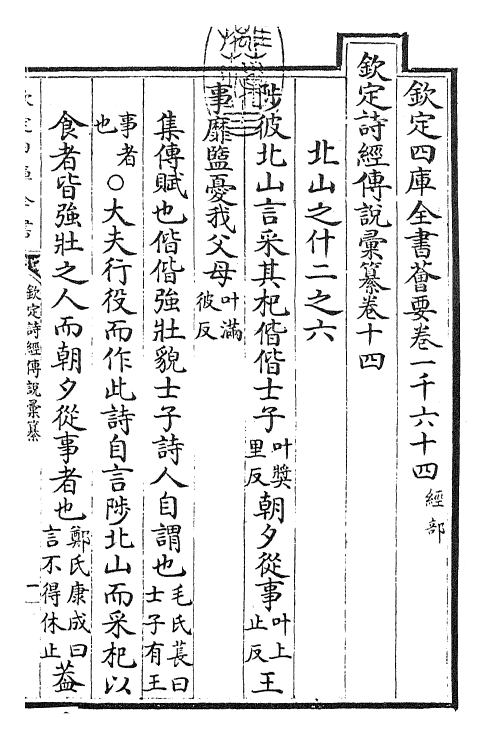 欽定四庫全書薈要卷一千六十四 經部
欽定詩經傳說彙纂卷十四
北山之什二之六
陟彼北山言采其杞偕偕士子叶奬里反朝夕從事叶上止反王
事靡盬憂我父母叶滿彼反
集傳賦也偕偕強壯貌士子詩人自謂也毛氏萇曰士子有王
事者也○大夫行役而作此詩自言陟北山而采杞以
食者皆強壯之人而朝夕從事者也鄭氏康成曰言不得休止葢
欽定詩經傳說彙纂